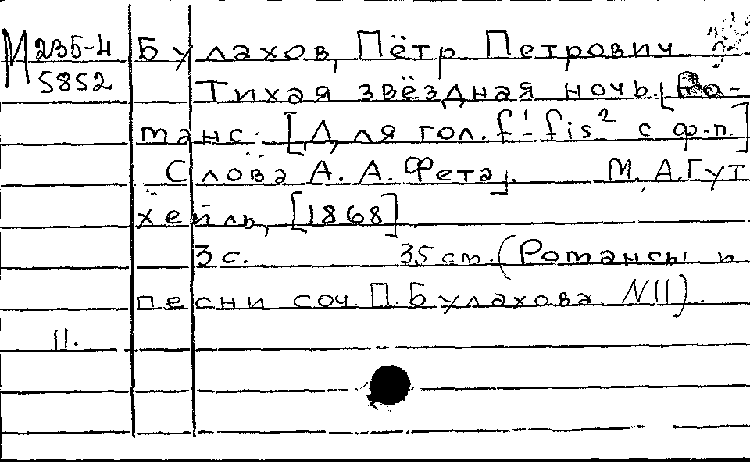 М 235-4 Булахов, Пётр Петрович
5852 Тихая звёздная ночь. [Ро-
манс. [Для гол. f¹-fis² с ф.-п.]
Слова А. А. Фета]. М., А. Гут
хейль, [1868]
3 с. 35 см. (Романсы и
песни соч. П. Булахова N11).
11.